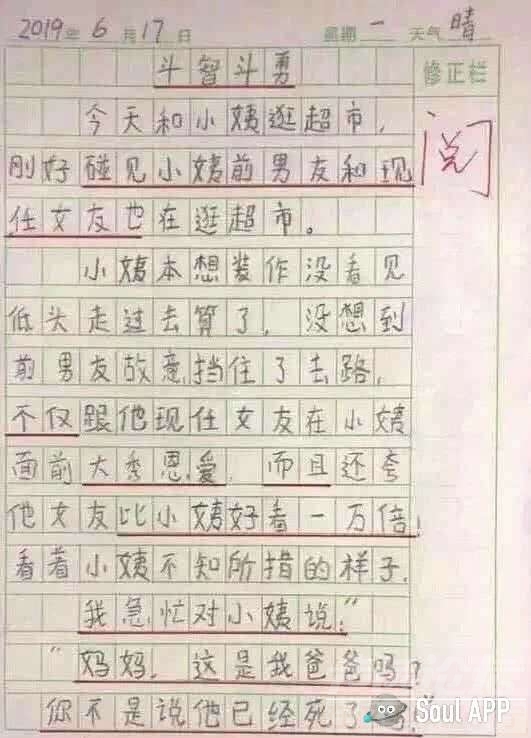 2019年6月17日 星期一 天气晴
斗智斗勇
修正栏
阅
今天和小姨逛超市，
刚好碰见小姨前男友和现
任女友也在逛超市。
小姨本想装作没看见
低头走过去算了，没想到
前男友故意挡住了去路，
不仅跟他现任女友在小姨
面前大秀恩爱，而且还夸
他女友比小姨好看一万倍！
看着小姨不知所措的样子，
我急忙对小姨说：“
“妈妈，这是我爸爸吗？
你不是说他已经死了
Soul APP